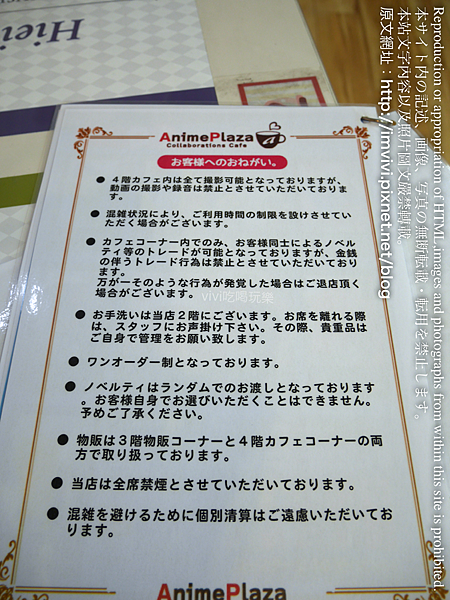 Hiei
AnimePlaza
Collaborations Cafe
お客様へのおねがい。
● 4階カフェ内は全て撮影可能となっておりますが、
動画の撮影や録音は禁止とさせていただいておりま
す。
● 混雑状況により、ご利用時間の制限を設けさせてい
ただく場合がございます。
● カフェコーナー内でのみ、お客様同士によるノベル
ティ等のトレードが可能となっておりますが、金銭
の伴うトレード行為は禁止とさせていただいており
ます。
万が一そのような行為が発覚した場合はご退店頂く
場合がございます。
● お手洗いは当店2階にございます。お席を離れる際
は、スタッフにお声掛け下さい。その際、貴重品は
ご自身で管理をお願い致します。
● ワンオーダー制となっております。
● ノベルティはランダムでのお渡しとなっております
。お客様自身でお選びいただくことはできません。
予めご了承ください。
● 物販は3階物販コーナーと4階カフェコーナーの両
方で取り扱っております。
● 当店は全席禁煙とさせていただいております。
● 混雑を避けるために個別清算はご遠慮いただいてお
ります。
AnimePlaza
VIVI吃喝玩樂
Reproduction or appropriation of HTML, images and photographs from within this site is prohibited.
本サイト内の記述、画像、写真の無断転載・転用を禁止します。
本站文字內容以及照片圖文嚴禁轉載。
原文網址：http://imvivi.pixnet.net/blog